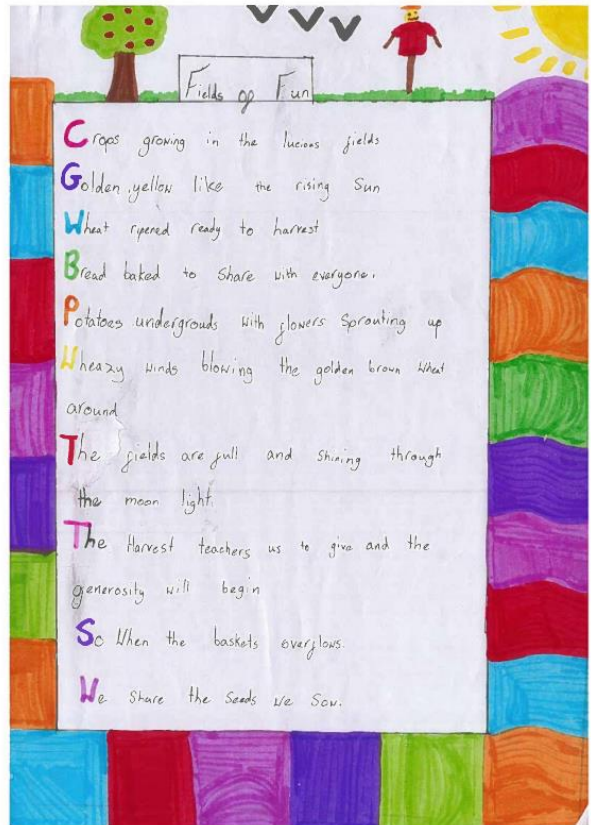 Fields of Fun
Crops growing in the lucious fields
Golden, yellow like the rising Sun
Wheat ripened ready to harvest
Bread baked to Share with everyone.
Potatoes undergrouds with flowers Sprouting up
Wheazy winds blowing the golden brown wheat
around
The fields are full and Shining through
the moon light.
The Harvest teachers us to give and the
generosity will begin
So When the baskets overflows.
We Share the Seeds We Sow.